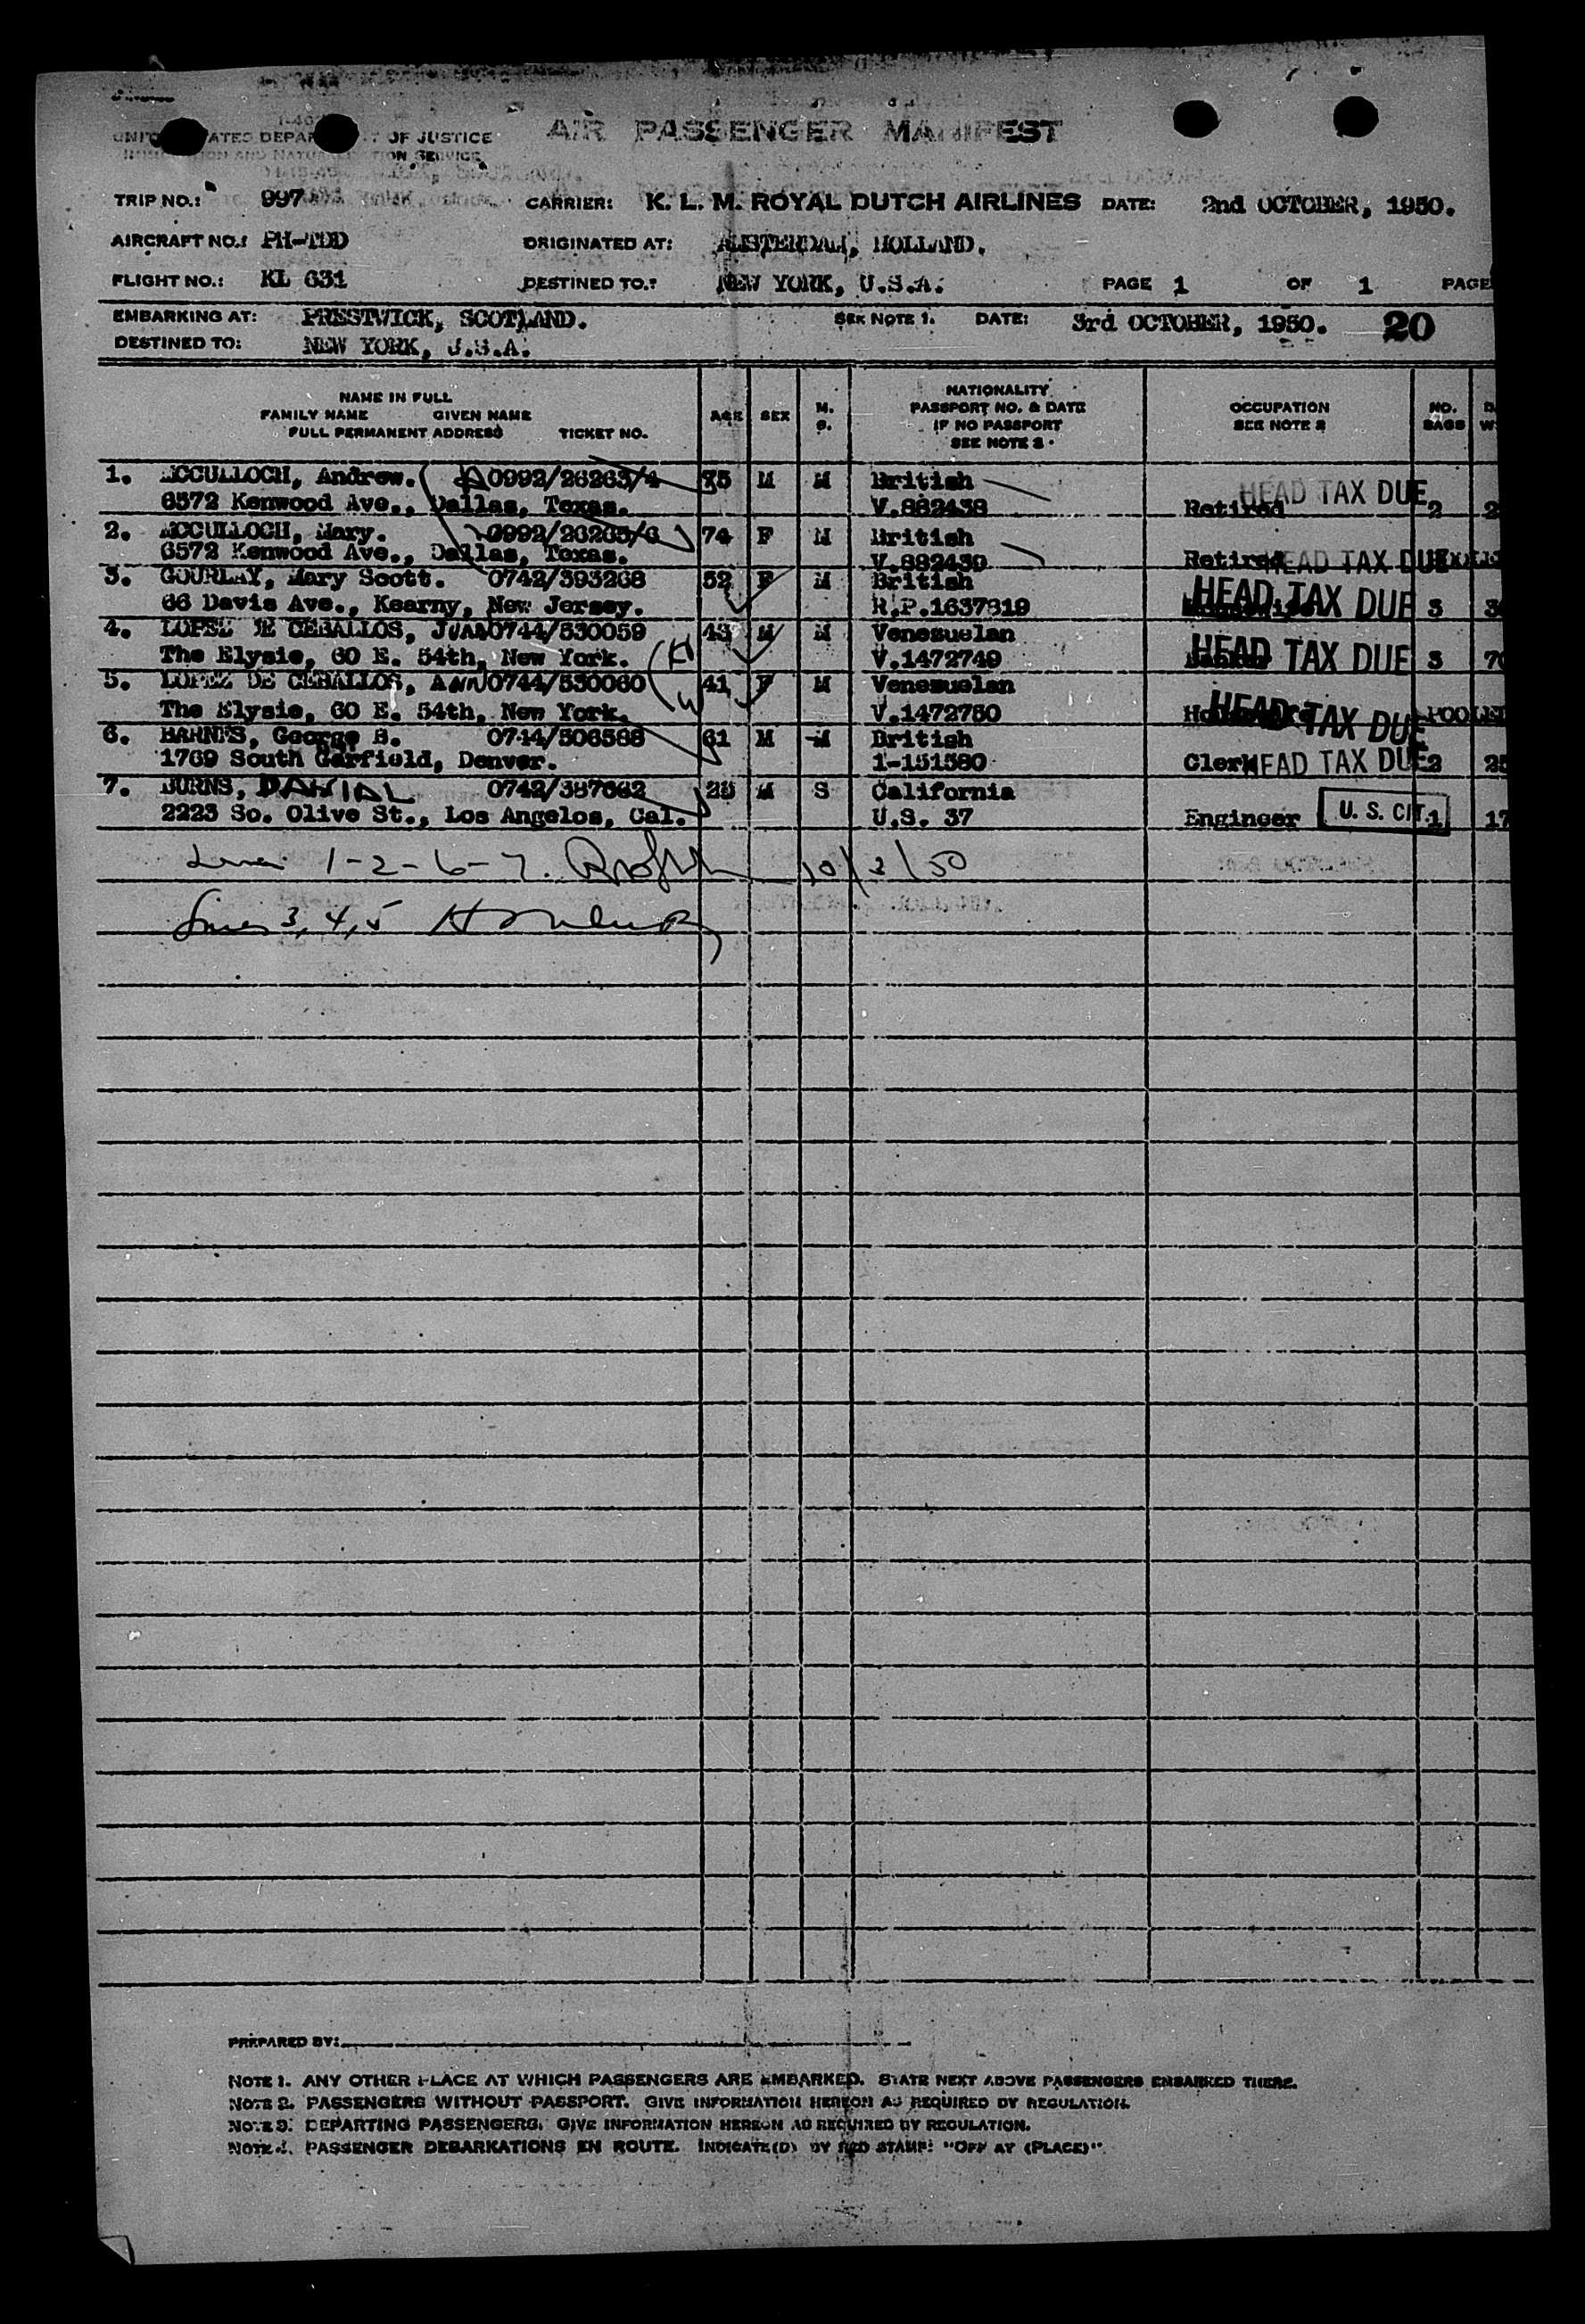 AIR PASSENGER MANIFEST
OF JUSTICE
TRIP NO.: 997 CARRIER: K. L. M. ROYAL DUTCH AIRLINES DATE: 2nd OCTOBER, 1950.
AIRCRAFT NO.: PH-TDD ORIGINATED AT: AMSTERDAM, HOLLAND.
FLIGHT NO.: KL 631 DESTINED TO: NEW YORK, U.S.A. PAGE 1 OF 1 PAGE
EMBARKING AT: PRESTWICK, SCOTLAND. SEE NOTE 1. DATE: 3rd OCTOBER, 1950. 20
DESTINED TO: NEW YORK, U.S.A.
NAME IN FULL
FAMILY NAME GIVEN NAME
FULL PERMANENT ADDRESS TICKET NO.
AGE SEX M. S.
NATIONALITY
PASSPORT NO. & DATE
IF NO PASSPORT
SEE NOTE 2
OCCUPATION
SEE NOTE 2
NO. BAGS
1. MCCULLOCH, Andrew. 0992/26263/4 75 M M British HEAD TAX DUE
6572 Kenwood Ave., Dallas, Texas. V.882438 Retired 2
2. MCCULLOCH, Mary. 0992/26265/6 74 F M British
6572 Kenwood Ave., Dallas, Texas. V.882439 Retired HEAD TAX DUE
3. GOURLAY, Mary Scott. 0742/393268 52 F M British
66 Davis Ave., Kearny, New Jersey. R.P.1637819 HEAD TAX DUE 3
4. LOPEZ DE CEBALLOS, JUAN 0744/530059 43 M M Venezuelan
The Elysie, 60 E. 54th, New York. (H V.1472749 HEAD TAX DUE 3 70
5. LOPEZ DE CEBALLOS, ANN 0744/530060 (W 41 F M Venezuelan
The Elysie, 60 E. 54th, New York. V.1472750 HEAD TAX DUE
6. BARNES, George B. 0744/506568 61 M M British
1769 South Garfield, Denver. 1-151580 Clerk HEAD TAX DUE 2 25
7. BURNS, DANIAL 0742/387662 M S California
2223 So. Olive St., Los Angelos, Cal. U.S. 37 Engineer U. S. CIT. 1 17
1-2-6-7. 10/3/50
Lines 3, 4, 5
PREPARED BY:
NOTE 1. ANY OTHER PLACE AT WHICH PASSENGERS ARE EMBARKED. STATE NEXT ABOVE PASSENGERS EMBARKED THERE.
NOTE 2. PASSENGERS WITHOUT PASSPORT. GIVE INFORMATION HEREON AS REQUIRED BY REGULATION.
NOTE 3. DEPARTING PASSENGERS. GIVE INFORMATION HEREON AS REQUIRED BY REGULATION.
NOTE 4. PASSENGER DEBARKATIONS EN ROUTE. INDICATE(D) BY RED STAMP: "OFF AT (PLACE)".